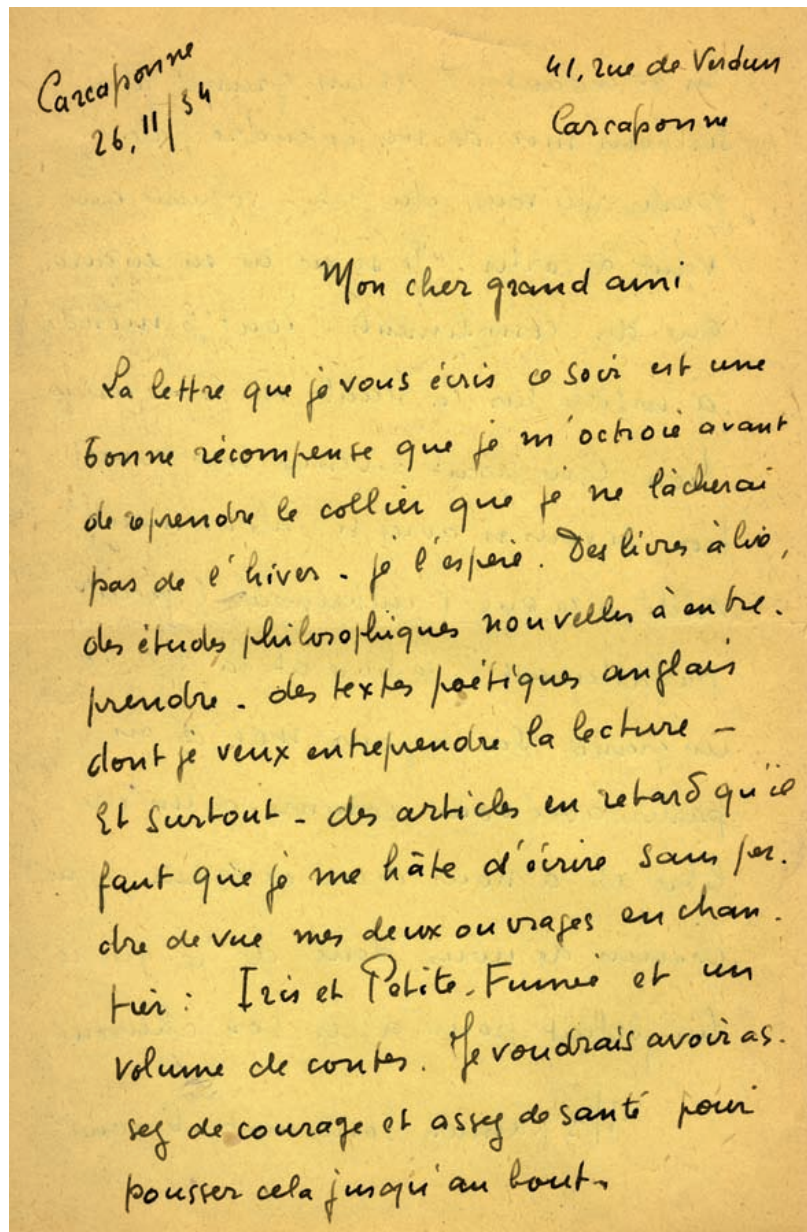 Carcassonne
26.11/34
41, rue de Verdun
Carcassonne
Mon cher grand ami
La lettre que je vous écris ce soir est une
bonne récompense que je m'octroie avant
de reprendre le collier que je ne lâcherai
pas de l'hiver - je l'espère. Des livres à lire,
des études philosophiques nouvelles à entre-
prendre - des textes poétiques anglais
dont je veux entreprendre la lecture -
Et surtout - des articles en retard qu'il
faut que je me hâte d'écrire sans per-
dre de vue mes deux ouvrages en chan-
tier : Iris et Petite-Fumée et un
volume de contes. Je voudrais avoir as-
sez de courage et assez de santé pour
pousser cela jusqu'au bout -